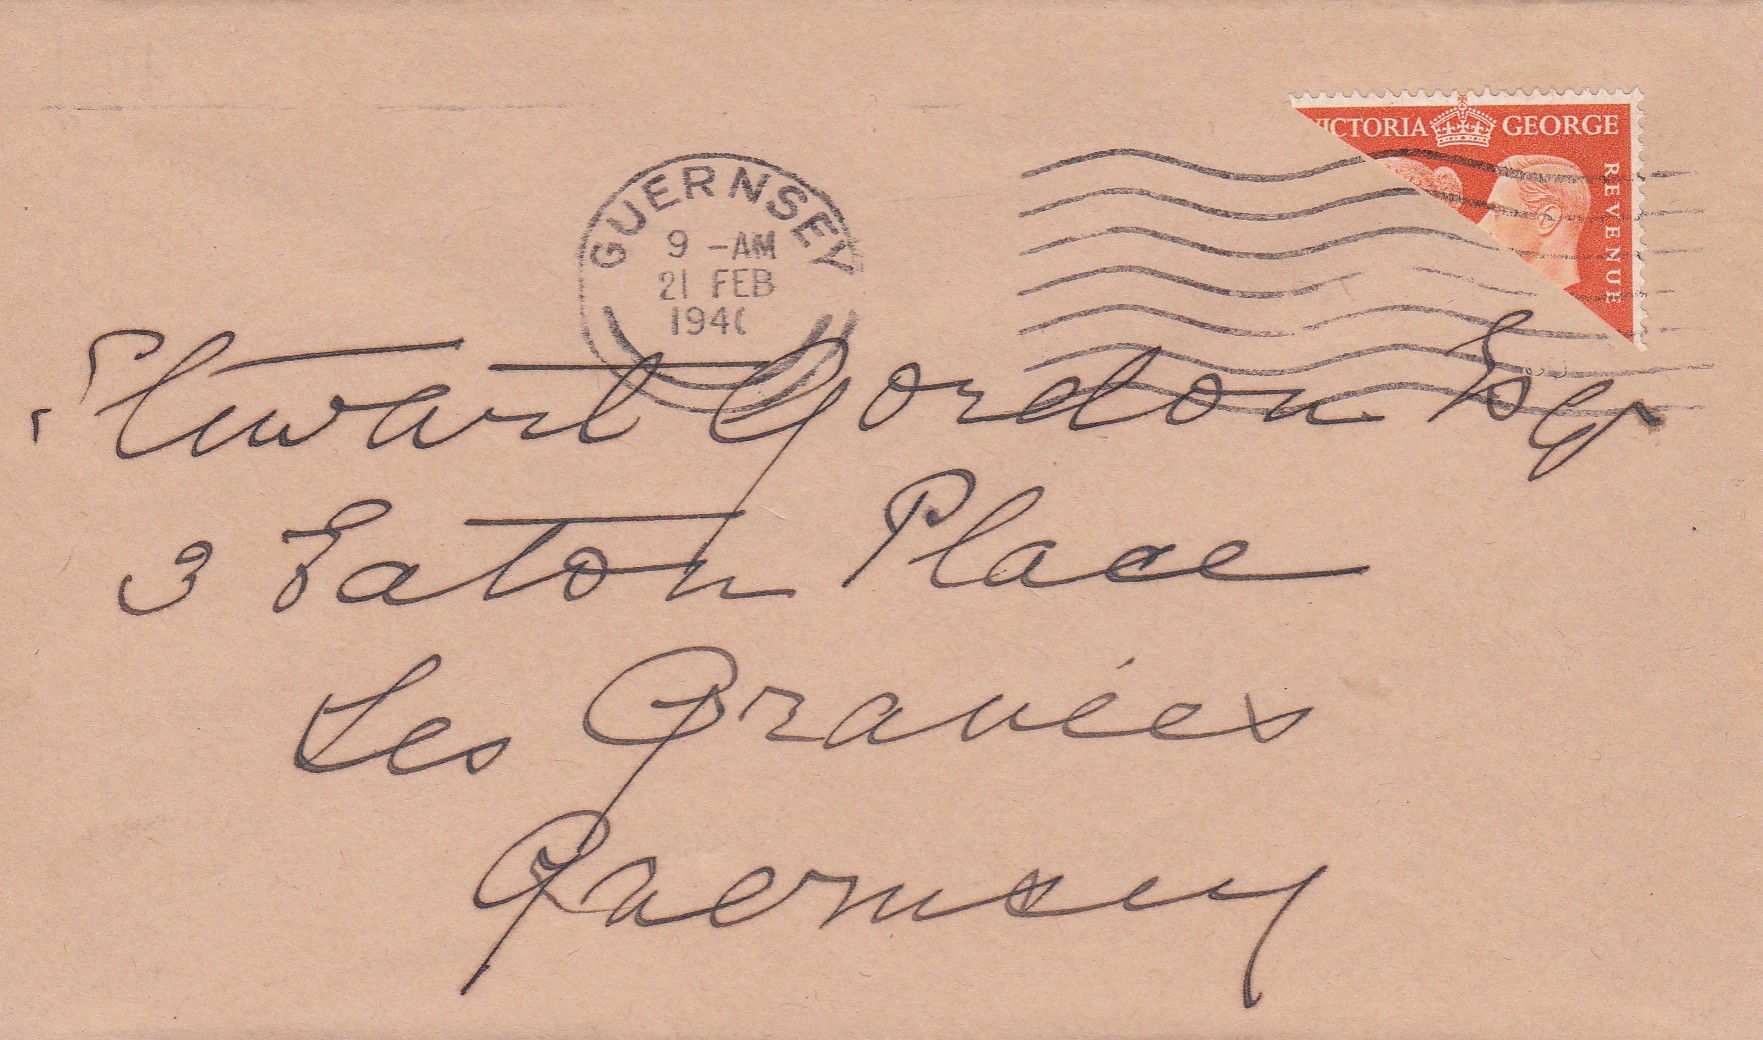 VICTORIA GEORGE
REVENUE
GUERNSEY
9 - AM
21 FEB
194
Stuart Gordon Esq
3 Eaton Place
Les Gravées
Guernsey